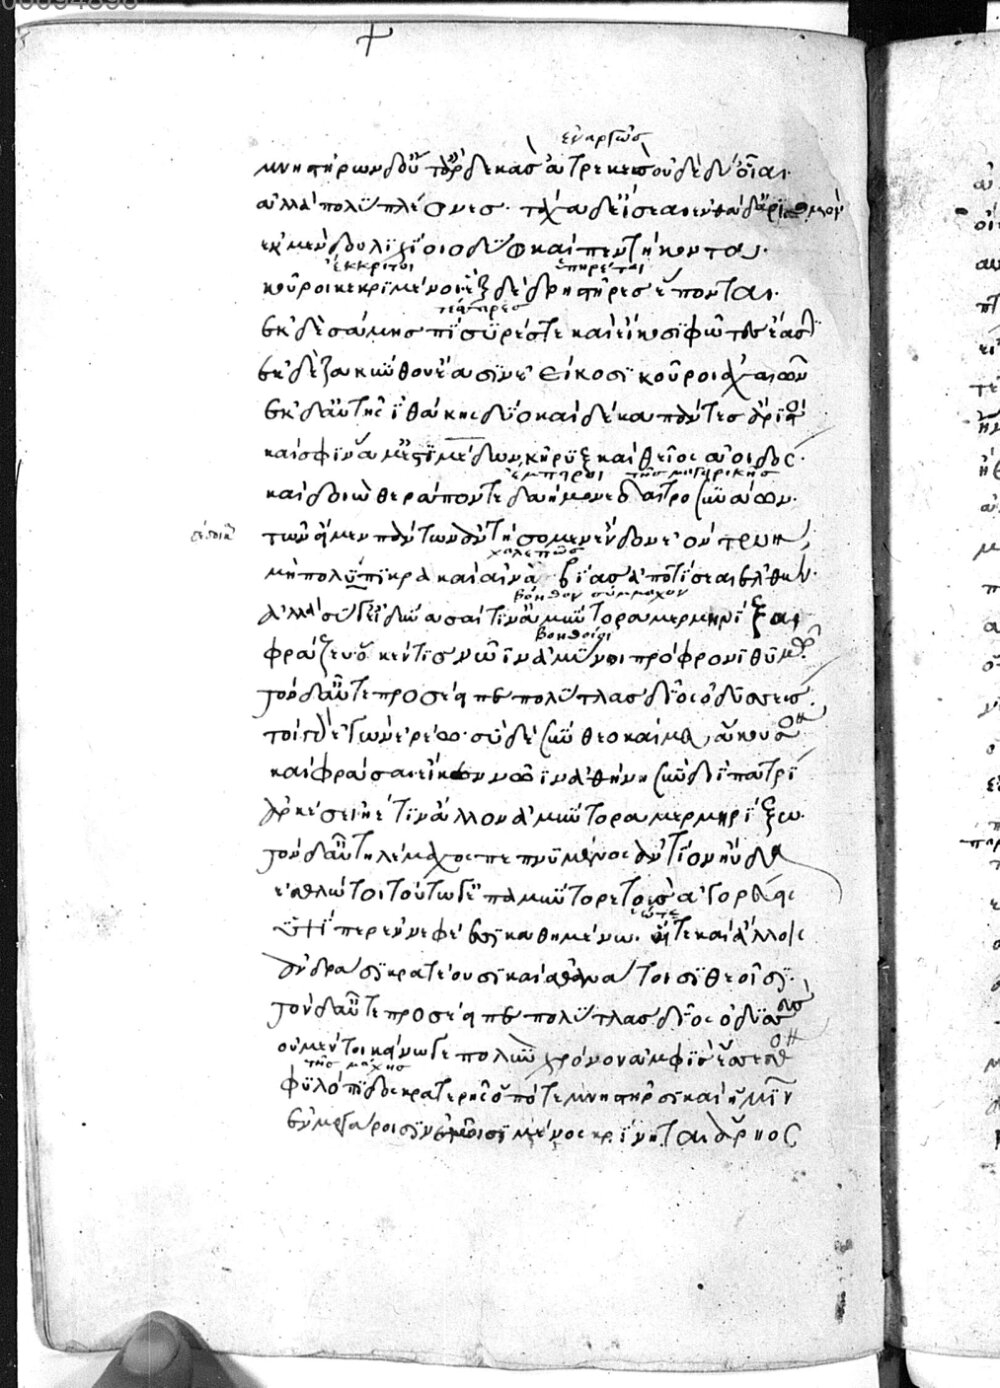 ἐναργῶς
μνηστήρων δοὔτ' ἂρ δεκὰς ἀτρεκὲς οὐδὲ δύ' οἶαι·
ἀλλὰ πολὺ πλέονες· τάχα δ' εἴσεαι ἐνθάδ' ἀριθμόν
ἐκ μὲν δουλιχίοιο δύω καὶ πεντήκοντα·
ἔκκριτοι ὑπηρέται
κοῦροι κεκριμένοι· ἓξ δὲ δρηστῆρες ἕπονται·
τέσσαρες
ἐκ δὲ σάμης πίσυρές τε καὶ εἴκοσι φῶτες ἔασιν
ἐκ δὲ ζακύνθου ἔασιν ἐείκοσι κοῦροι ἀχαιῶν
ἐκ δ' αὐτῆς ἰθάκης δύο καὶ δέκα πάντες ἄριστοι
καί σφιν ἅμ' ἐστὶ μέδων, κήρυξ καὶ θεῖος ἀοιδός·
ἔμπειροι τῆς μαγειρικῆς
καὶ δοιὼ θεράποντε δαήμονε δαιτροσυνάων·
τῶν πάντων ἀντήσομεν ἔνδον ἐόντων,
χαλεπῶς
μὴ πολύπικρα καὶ αἰνὰ βίας ἀποτίσεαι ἐλθών·
βοηθὸν σύμμαχον
ἀλλὰ σύ γ' εἰ δύνασαι τιν' ἀμύντορα μερμηρίξαι
βοηθοίη
φράζευ ὅ κέν τις νῶϊν ἀμύνοι πρόφρονι θυμῷ
τὸν δ' αὖτε προσέειπε πολύτλας δῖος ὀδυσσεύς
τοὶ γὰρ ἐγὼν ἐρέω· σὺ δὲ σύνθεο καί μευ ἄκουσον
καὶ φράσαι εἴ κεν νῶϊν ἀθήνη σὺν διῒ πατρὶ
ἀρκέσει ἠέ τιν' ἄλλον ἀμύντορα μερμηρίξω·
τὸν δ' αὖ τηλέμαχος πεπνυμένος ἀντίον ηὔδα
ἐσθλώ τοι τούτω γ' ἐπαμύντορε τοὺς ἀγορεύεις
ὕψι περ ἐν νεφέεσσι καθημένω· ὥτε καὶ ἄλλοις
ἀνδράσι κρατέουσι καὶ ἀθανάτοισι θεοῖσι·
τὸν δ' αὖτε προσέειπε πολύτλας δῖος ὀδυσσεύς
οὐ μέν τοι κείνω γε πολὺν χρόνον ἀμφὶς ἔσεσθον
τῆς μάχης
φυλόπιδος κρατερῆς ὁπότε μνηστῆρσι καὶ ἡμῖν
ἐν μεγάροισιν ἐμοῖσι μένος κρίνηται ἄρηος